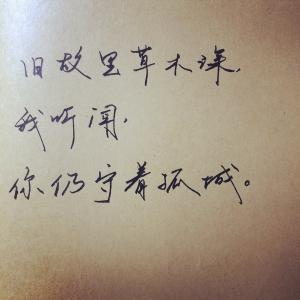 旧故里草木深，
我听闻，
你仍守着孤城。